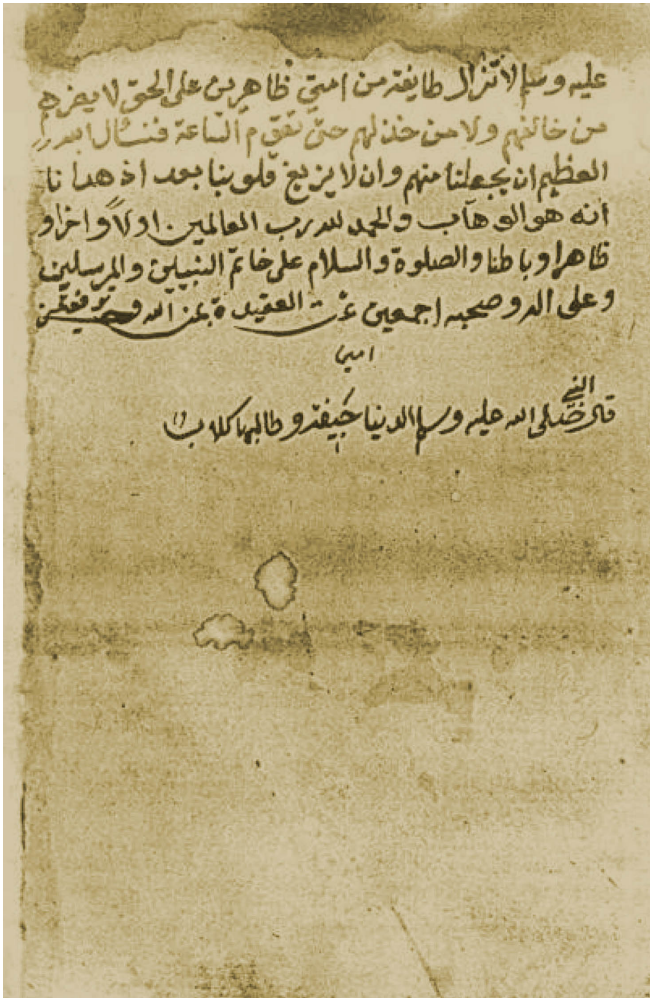 عليه وسلم لا تزال طايفة من امتي ظاهرين على الحق لا يضرهم
من خالفهم ولا من خذلهم حتى تقوم الساعة فنسال الله
العظيم ان يجعلنا منهم وان لا يزيغ قلوبنا بعد اذ هدانا
انه هو الوهاب والحمد لله رب العالمين اولاً واخرا و
ظاهرا وباطنا والصلوة والسلام على خاتم النبيين والمرسلين
وعلى اله وصحبه اجمعين تمت العقيدة بمن الله و توفيقه
امين
قال النبي صلى الله عليه وسلم الدنيا جيفة وطالبها كلاب